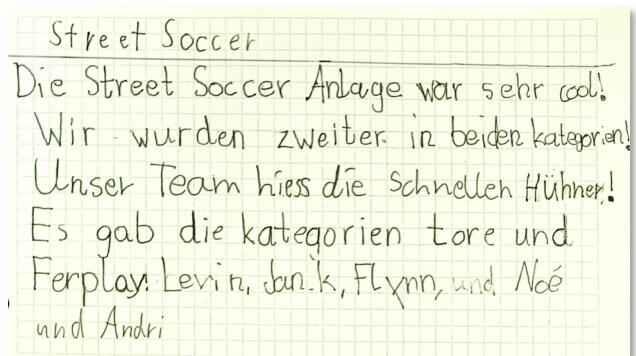 Street Soccer
Die Street Soccer Anlage war sehr cool!
Wir wurden zweiter in beiden kategorien!
Unser Team hiess die Schnellen Hühner!
Es gab die kategorien tore und
Ferplay. Levin, Janik, Flynn, und Noé
und Andri